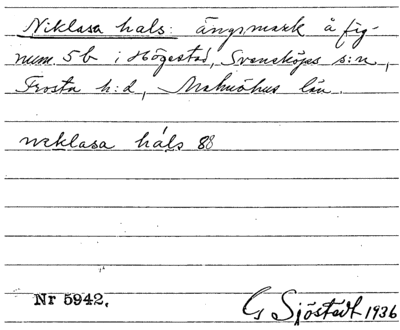 Niklasa hals: ängsmark å fig-
num. 5b i Högestad, Svensköps s:n,
Frosta h:d, Malmöhus län.
neklasa háls 88
Nr 5942.
G Sjöstedt 1936